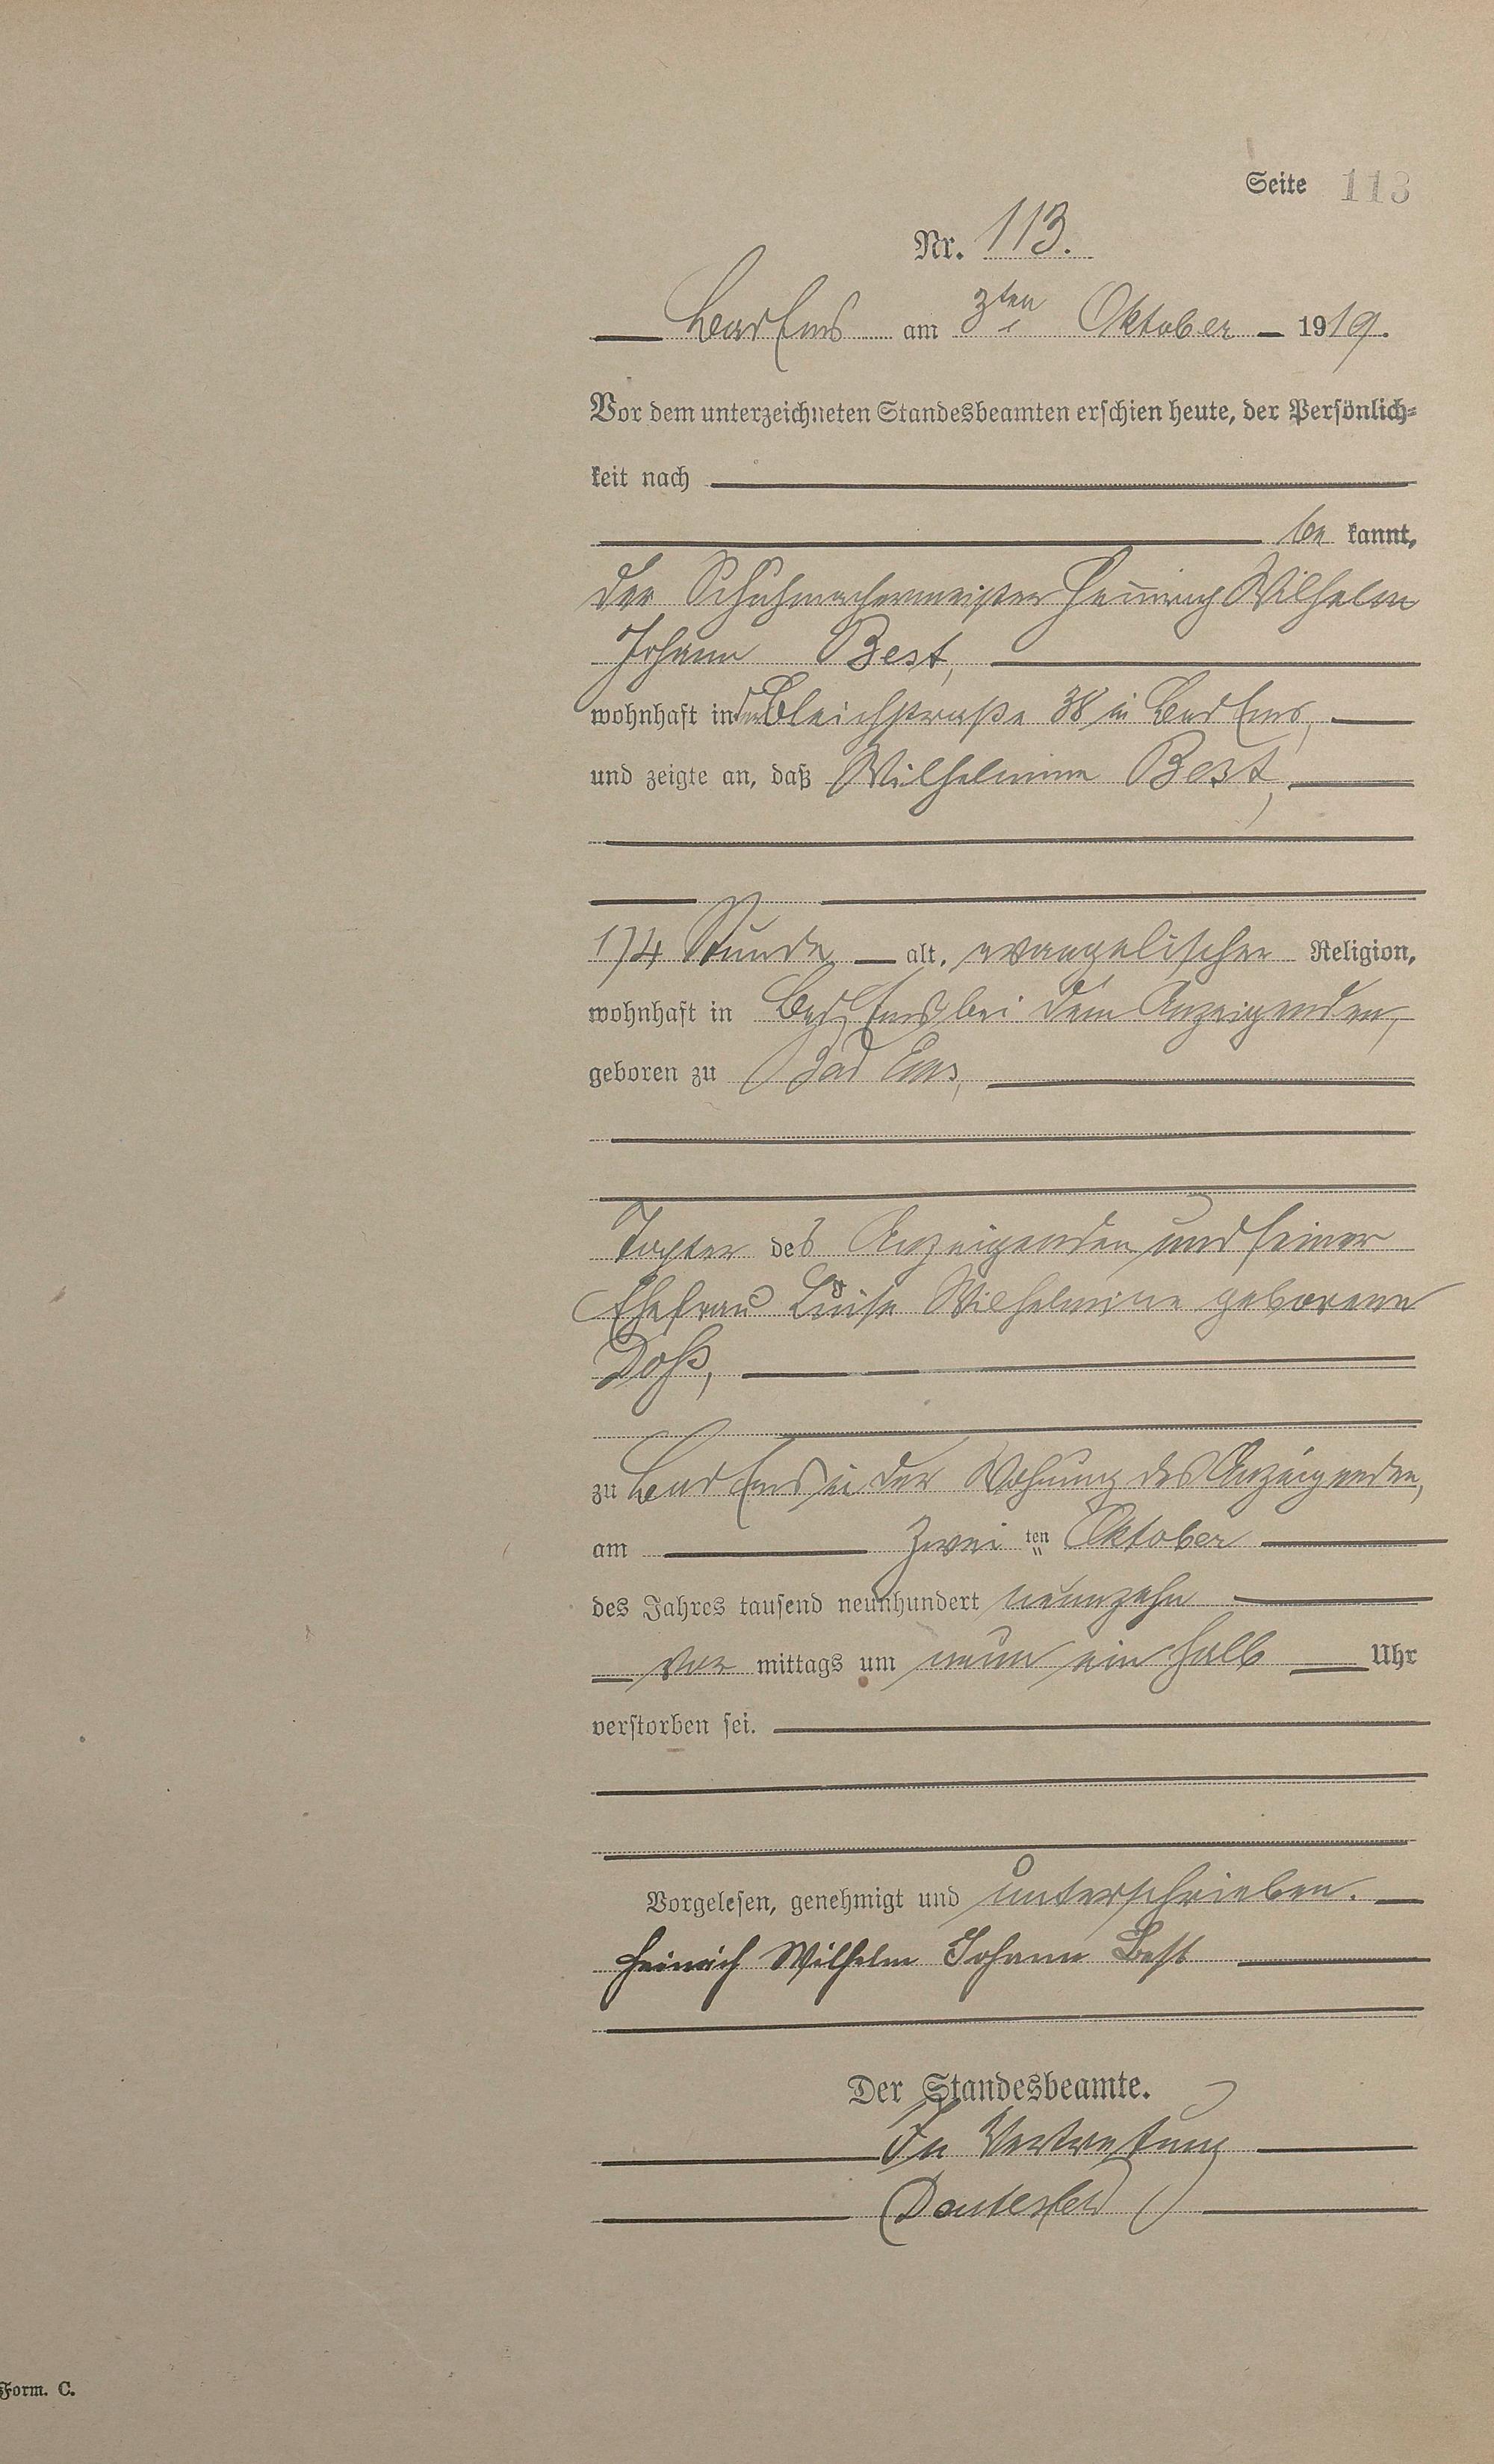 Seite 113
Nr. 113.
Bad Ems am 3ten Oktober 1919.
Vor dem unterzeichneten Standesbeamten erschien heute, der Persönlich-
keit nach
be kannt,
der Schuhmachermeister Heinrich Wilhelm
Johann Best,
wohnhaft in der Bleichstraße 38 in Bad Ems,
und zeigte an, daß Wilhelmine Best,
1/4 Stunde alt, evangelischer Religion,
wohnhaft in Bad Ems bei dem Anzeigenden,
geboren zu Bad Ems,
Tochter des Anzeigenden und seiner
Ehefrau Luise Wilhelmine geborene
Doß,
zu Bad Ems in der Wohnung des Anzeigenden,
am zwei ten Oktober
des Jahres tausend neunhundert neunzehn
vor mittags um neun ein halb Uhr
verstorben sei.
Vorgelesen, genehmigt und unterschrieben.
Heinrich Wilhelm Johann Best
Der Standesbeamte.
In Vertretung
Form. C.